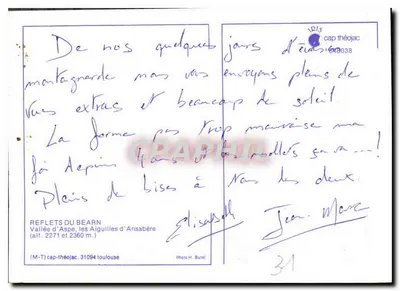 De nos quelques jours d'évasion
montagnarde nous vous envoyons pleins de
vues extras et beaucoup de soleil
La forme pas trop mauvaise ma
foi depuis 4 ans et les mollets ça va...!
Pleins de bises à vous les deux.
Elisabeth Jean-Marc
cap théojac
REFLETS DU BEARN
Vallée d'Aspe, les Aiguilles d'Ansabère
(alt. 2271 et 2360 m.)
(M-T) cap-théojac. 31094 toulouse
Photo H.
31
CPAPHIL